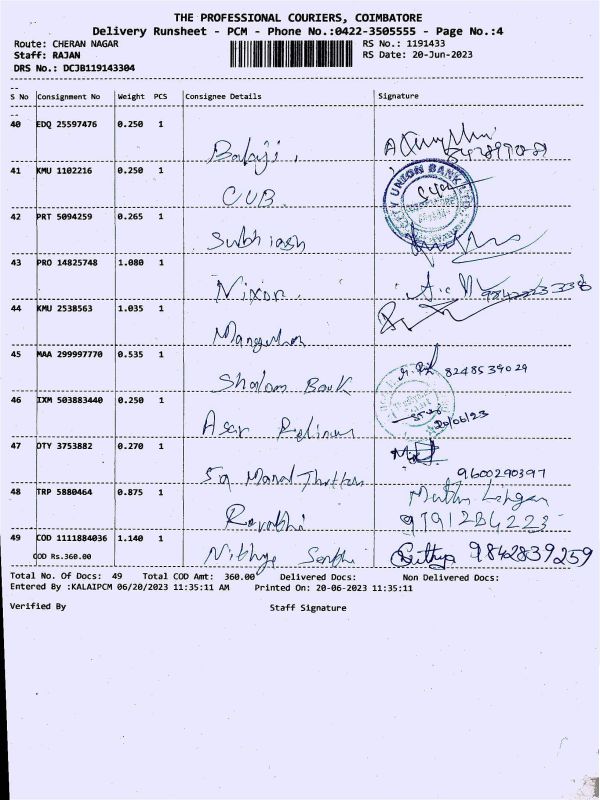 THE PROFESSIONAL COURIERS, COIMBATORE
Delivery Runsheet - PCM - Phone No.:0422-3505555 - Page No.:4
Route: CHERAN NAGAR RS No.: 1191433
Staff: RAJAN RS Date: 20-Jun-2023
DRS No.: DCJB119143304
S No Consignment No Weight PCS Consignee Details Signature
40 EDQ 25597476 0.250 1
Balaji.
41 KMU 1102216 0.250 1
CITY UNION BANK LTD.
CUB.
42 PRT 5094259 0.265 1
Subhiash
43 PRO 14825748 1.080 1
Nixon.
44 KMU 2538563 1.035 1
45 MAA 299997770 0.535 1
8248534029
Shalom Bank
46 IXM 503883440 0.250 1
20/06/23
47 DTY 3753882 0.270 1
9600290397
48 TRP 5880464 0.875 1
9791284223
49 COD 1111884036 1.140 1
9842839259
COD Rs.360.00
Total No. Of Docs: 49 Total COD Amt: 360.00 Delivered Docs: Non Delivered Docs:
Entered By :KALAIPCM 06/20/2023 11:35:11 AM Printed On: 20-06-2023 11:35:11
Verified By Staff Signature